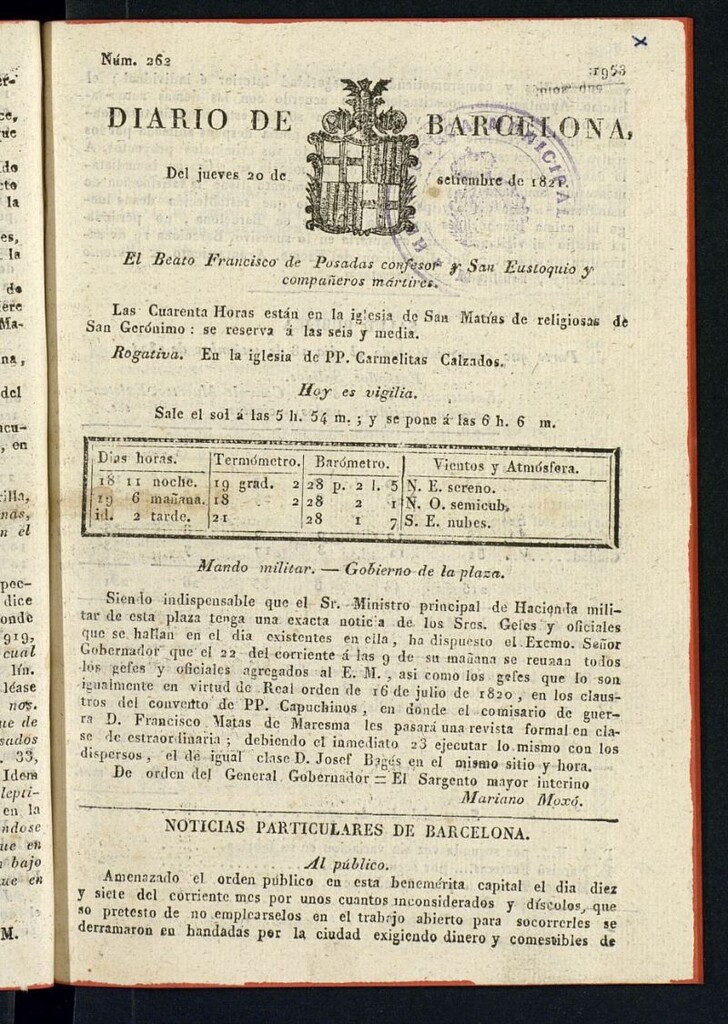 Núm. 262
1953
DIARIO DE BARCELONA,
Del jueves 20 de setiembre de 1821.
El Beato Francisco de Posadas confesor y San Eustoquio y
compañeros mártires.
Las Cuarenta Horas están en la iglesia de San Matías de religiosas de
San Gerónimo: se reserva á las seis y media.
Rogativa. En la iglesia de PP. Carmelitas Calzados.
Hoy es vigilia.
Sale el sol á las 5 h. 54 m.; y se pone á las 6 h. 6 m.
Dias horas. Termómetro. Barómetro. Vientos y Atmósfera.
18 11 noche. 19 grad. 2 28 p. 2 l. 5 N. E. sereno.
19 6 mañana. 18 2 28 2 1 N. O. semicub.
id. 2 tarde. 21 28 1 7 S. E. nubes.
Mando militar. — Gobierno de la plaza.
Siendo indispensable que el Sr. Ministro principal de Hacienda mili-
tar de esta plaza tenga una exacta noticia de los Sres. Gefes y oficiales
que se hallan en el dia existentes en ella, ha dispuesto el Excmo. Señor
Gobernador que el 22 del corriente á las 9 de su mañana se reunan todos
los gefes y oficiales agregados al E. M., asi como los gefes que lo son
igualmente en virtud de Real orden de 16 de julio de 1820, en los claus-
tros del convento de PP. Capuchinos, en donde el comisario de guer-
ra D. Francisco Matas de Maresma les pasará una revista formal en cla-
se de estraordinaria; debiendo el inmediato 23 ejecutar lo mismo con los
dispersos, el de igual clase D. Josef Bagés en el mismo sitio y hora.
De orden del General Gobernador = El Sargento mayor interino
Mariano Moxó.
NOTICIAS PARTICULARES DE BARCELONA.
Al público.
Amenazado el orden público en esta benemérita capital el dia diez
y siete del corriente mes por unos cuantos inconsiderados y díscolos, que
so pretesto de no emplearselos en el trabajo abierto para socorrerles se
derramaron en bandadas por la ciudad exigiendo dinero y comestibles de